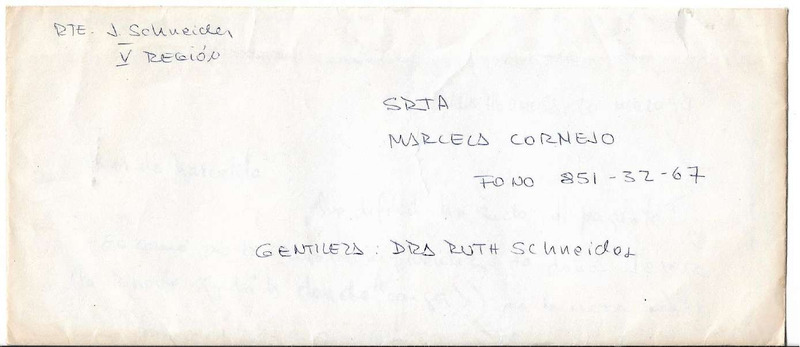 RTE. J. Schneider
V REGIÓN
SRTA
MARCELA CORNEJO
FONO 851-32-67
GENTILEZA: DRA RUTH Schneider